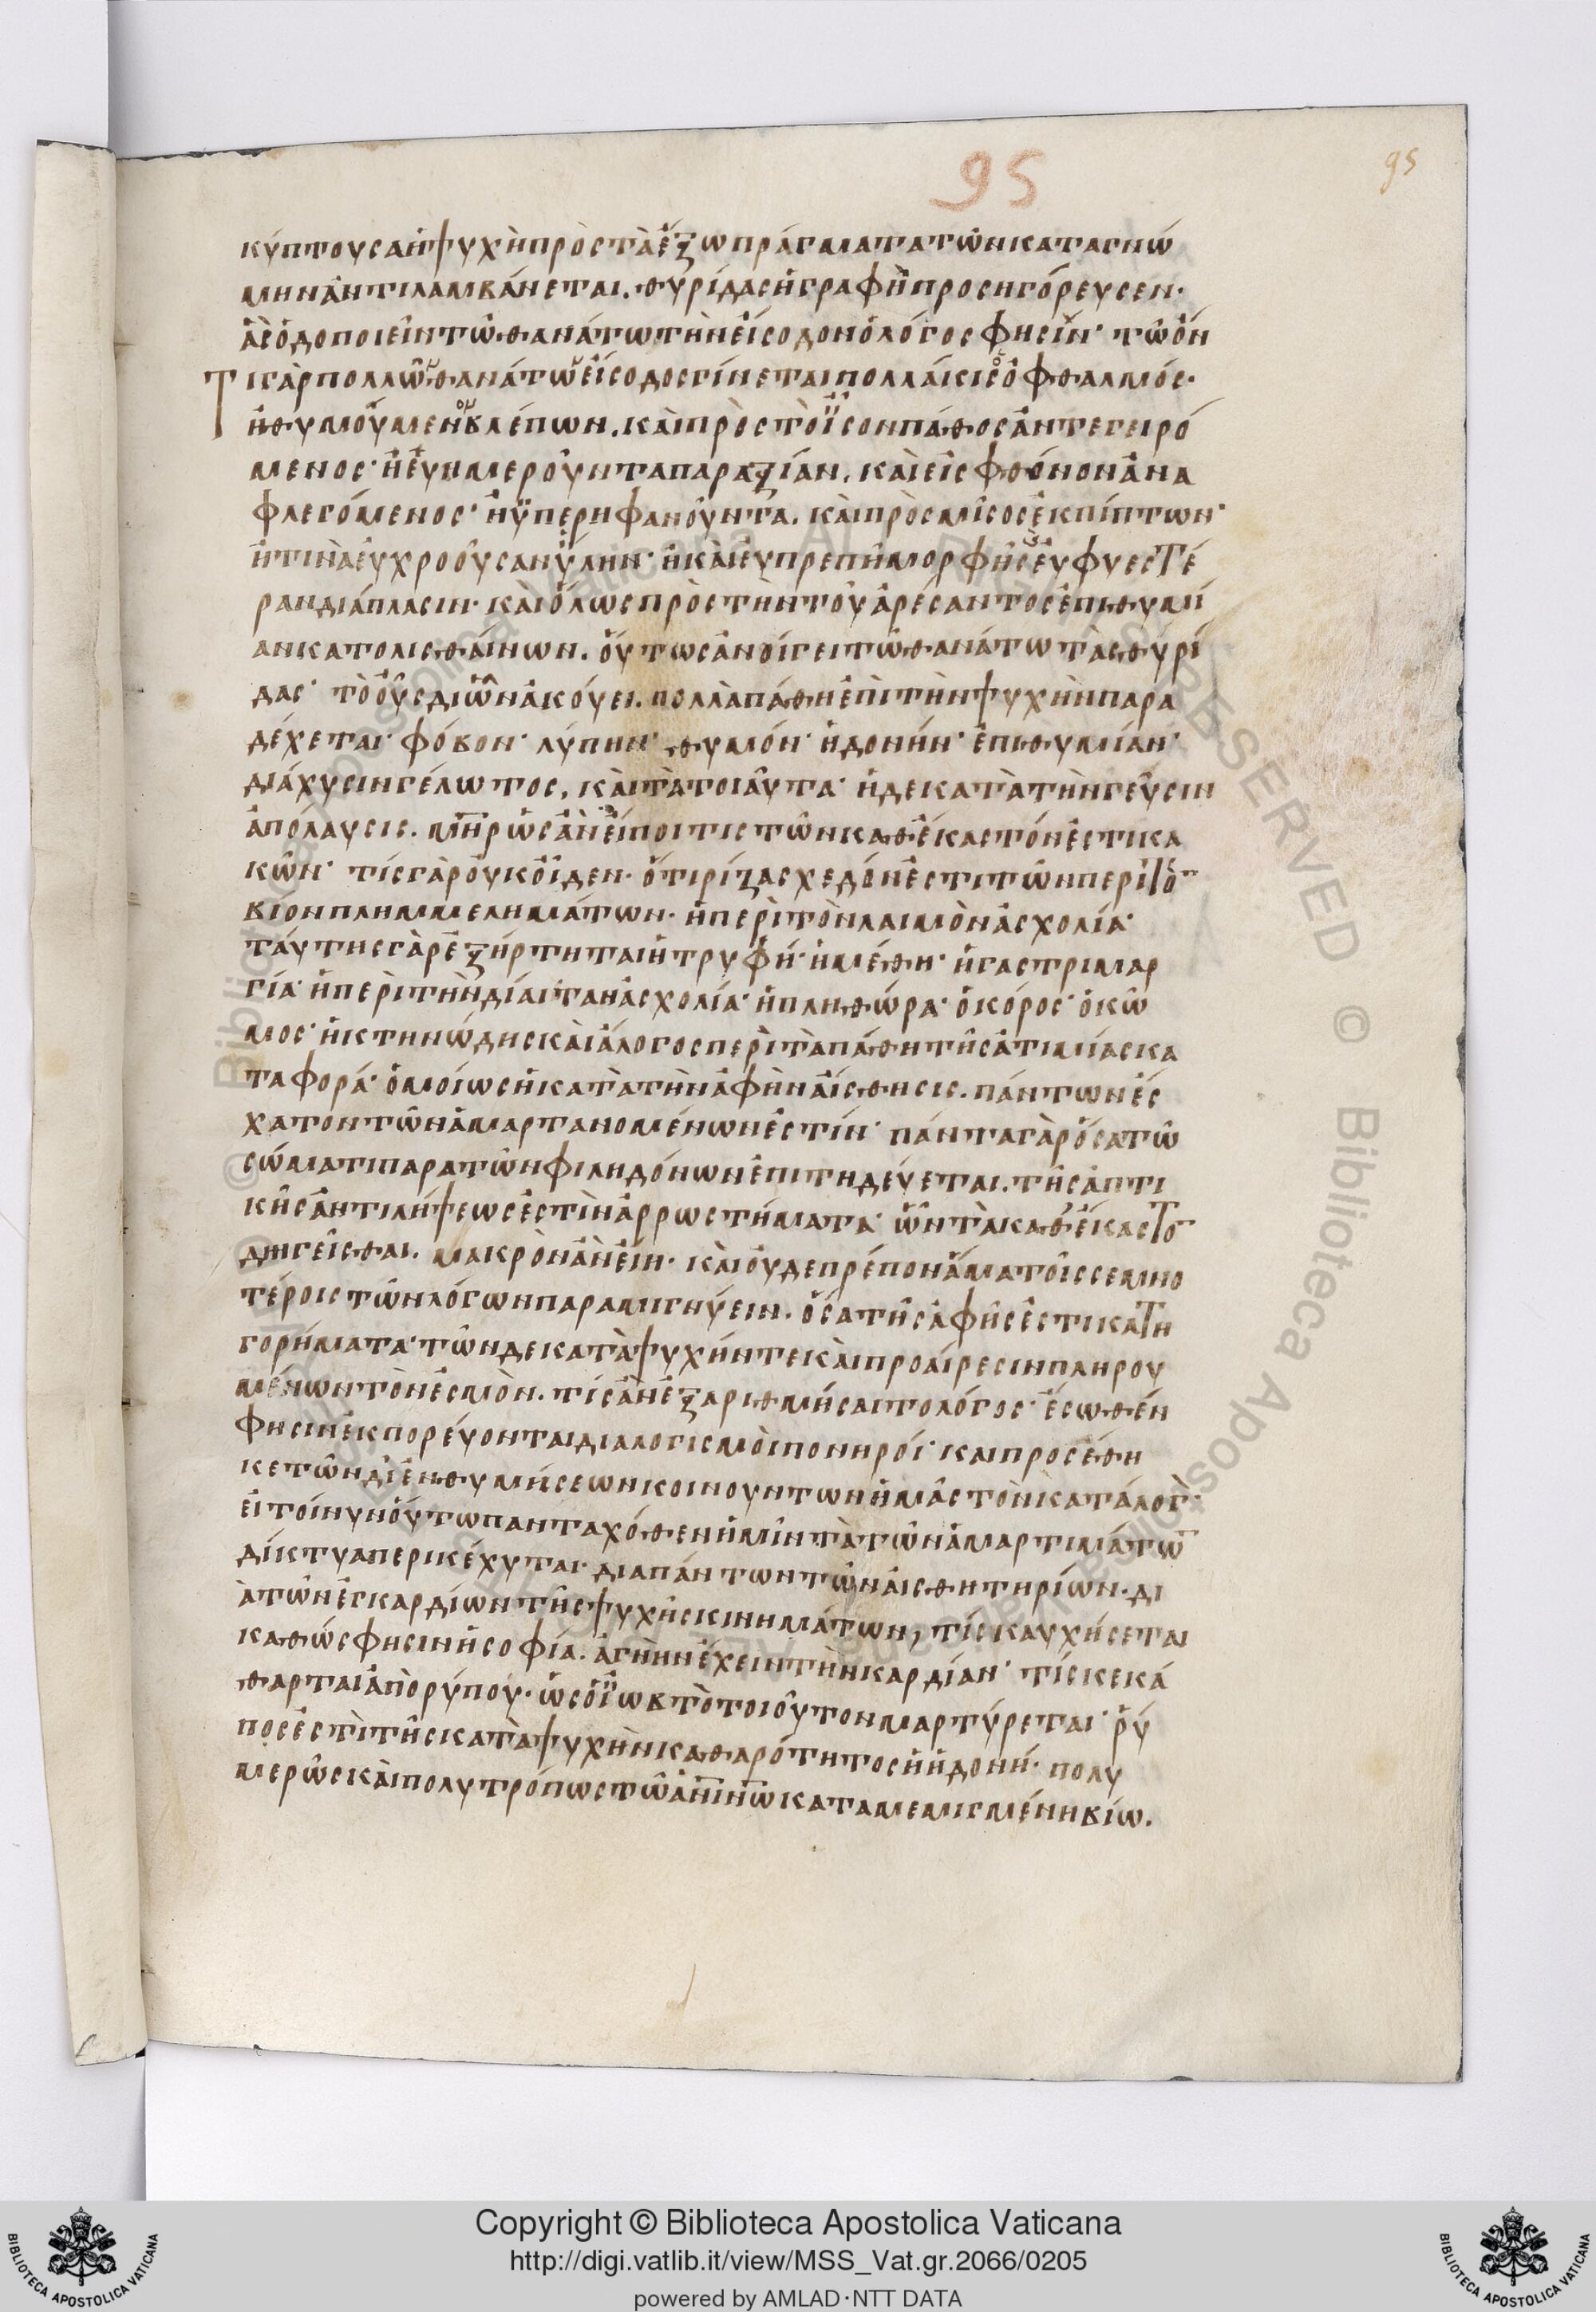 95
95
κύπτουσα ἡ ψυχὴ πρὸς τὰ ἔξω πράγματα τῶν κατὰ γνώ
μην ἀντιλαμβάνεται. θυρίδας ἡ γραφὴ προσηγόρευσεν·
ἃς ὁδοποιεῖν τῶ θανάτω τὴν εἴσοδον ὁ λόγος φησίν· τῶ ὄν
τι γὰρ πολλῶν θανάτων εἴσοδος γίνεται πολλάκις ὁ ὀφθαλμός·
ἢ θυμούμενον βλέπων. καὶ πρὸς τὸ ἴσον πάθος ἀντεγειρό
μενος· ἢ εὐημεροῦντα παραξίαν. καὶ εἰς φθόνον ἀνα
φλεγόμενος· ἢ ὑπερηφανοῦντα. καὶ πρὸς μῖσος ἐκπίπτων·
ἤ τινα εὐχροοῦσαν ὕλην· ἢ καὶ εὐπρεπῆ μορφῆς εὐφυεστέ
ραν διάπλασιν· καὶ ὅλως πρὸς τὴν τοῦ ἀρέσαντος ἐπιθυμί
αν κατολισθαίνων. οὕτως ἀνοίγει τῶ θανάτω τὰς θυρί
δας· τὸ οὖς δι ὧν ἀκούει. πολλὰ πάθη ἐπὶ τὴν ψυχὴν παρα
δέχεται· φόβον· λύπην· θυμόν· ἡδονήν· ἐπιθυμίαν·
διάχυσιν γέλωτος, καὶ τὰ τοιαῦτα· ἡ δε κατὰ τὴν γεῦσιν
ἀπόλαυσις. μηρ ὡς ἂν εἴποι τις τῶν καθ ἕκαστόν ἐστι κα
κῶν· τίς γὰρ οὐκ οἶδεν· ὅτι ρίζα σχεδόν ἐστι τῶν περι τὸν
βίον πλημμελημάτων· ἡ περὶ τὸν λαιμὸν ἀσχολία·
ταύτης γὰρ ἐξήρτηται ἡ τρυφή· ἡ μέθη· ἡ γαστριμαρ
γία· ἡ περὶ τὴν δίαιταν ἀσχολία· ἡ πληθώρα· ὁ κόρος· ὁ κῶ
μος· ἡ κτηνώδης καὶ ἄλογος περὶ τὰ πάθη τῆς ἀτιμίας κα
ταφορά· ὁμοίως ἡ κατὰ τὴν ἀφὴν αἴσθησις. πάντων ἔς
χατον τῶν ἁμαρτανομένων ἐστίν· πάντα γὰρ ὅσα τῶ
σώματι παρα τῶν φιληδόνων ἐπιτηδεύεται. τῆς ἁπτι
κῆς ἀντιλήψεως ἐστὶν ἀρρωστήματα· ὧν τὰ καθ ἕκαστον
διηγεῖσθαι. μακρὸν ἂν εἴη· καὶ οὐδε πρέπον ἅμα τοῖς σεμνο
τέροις τῶν λόγων παραμιγνύειν. ὅσα τῆς ἁφῆς ἐστι κατη
γορήματα· τῶν δε κατὰ ψυχήν τε καὶ προαίρεσιν πληρου
μένων τὸν ἑσμὸν. τίς ἂν ἐξαριθμήσαιτο λόγος· ἔσωθέν
φησιν ἐκπορεύονται διαλογισμοὶ πονηροί· και προσέθη
κε τῶν δι ἐνθυμήσεων κοινουντων ἡμᾶς τὸν κατάλογον·
εἰ τοίνυν οὕτω πανταχόθεν ἡμῖν τὰ τῶν ἁμαρτιμάτων
δίκτυα περικέχυται· δια πάντων τῶν αἰσθητηρίων. δι
ὰ τῶν ἐγκαρδίων τῆς ψυχῆς κινημάτων, τίς καυχήσεται
καθώς φησιν ἡ σοφία. ἁγνὴν ἔχειν τὴν καρδίαν· τίς κεκά
θαρται ἀπὸ ρύπου· ὡς ὁ ϊὼβ τὸ τοιοῦτον μαρτύρεται· ρύ
πος ἐστὶ τῆς κατὰ ψυχὴν καθαρότητος ἡ ἡδονή· πολυ
μερῶς καὶ πολυτρόπως τῶ ἀνίνω καταμεμιγμένη βίω.
Copyright © Biblioteca Apostolica Vaticana
http://digi.vatlib.it/view/MSS_Vat.gr.2066/0205
powered by AMLAD·NTT DATA